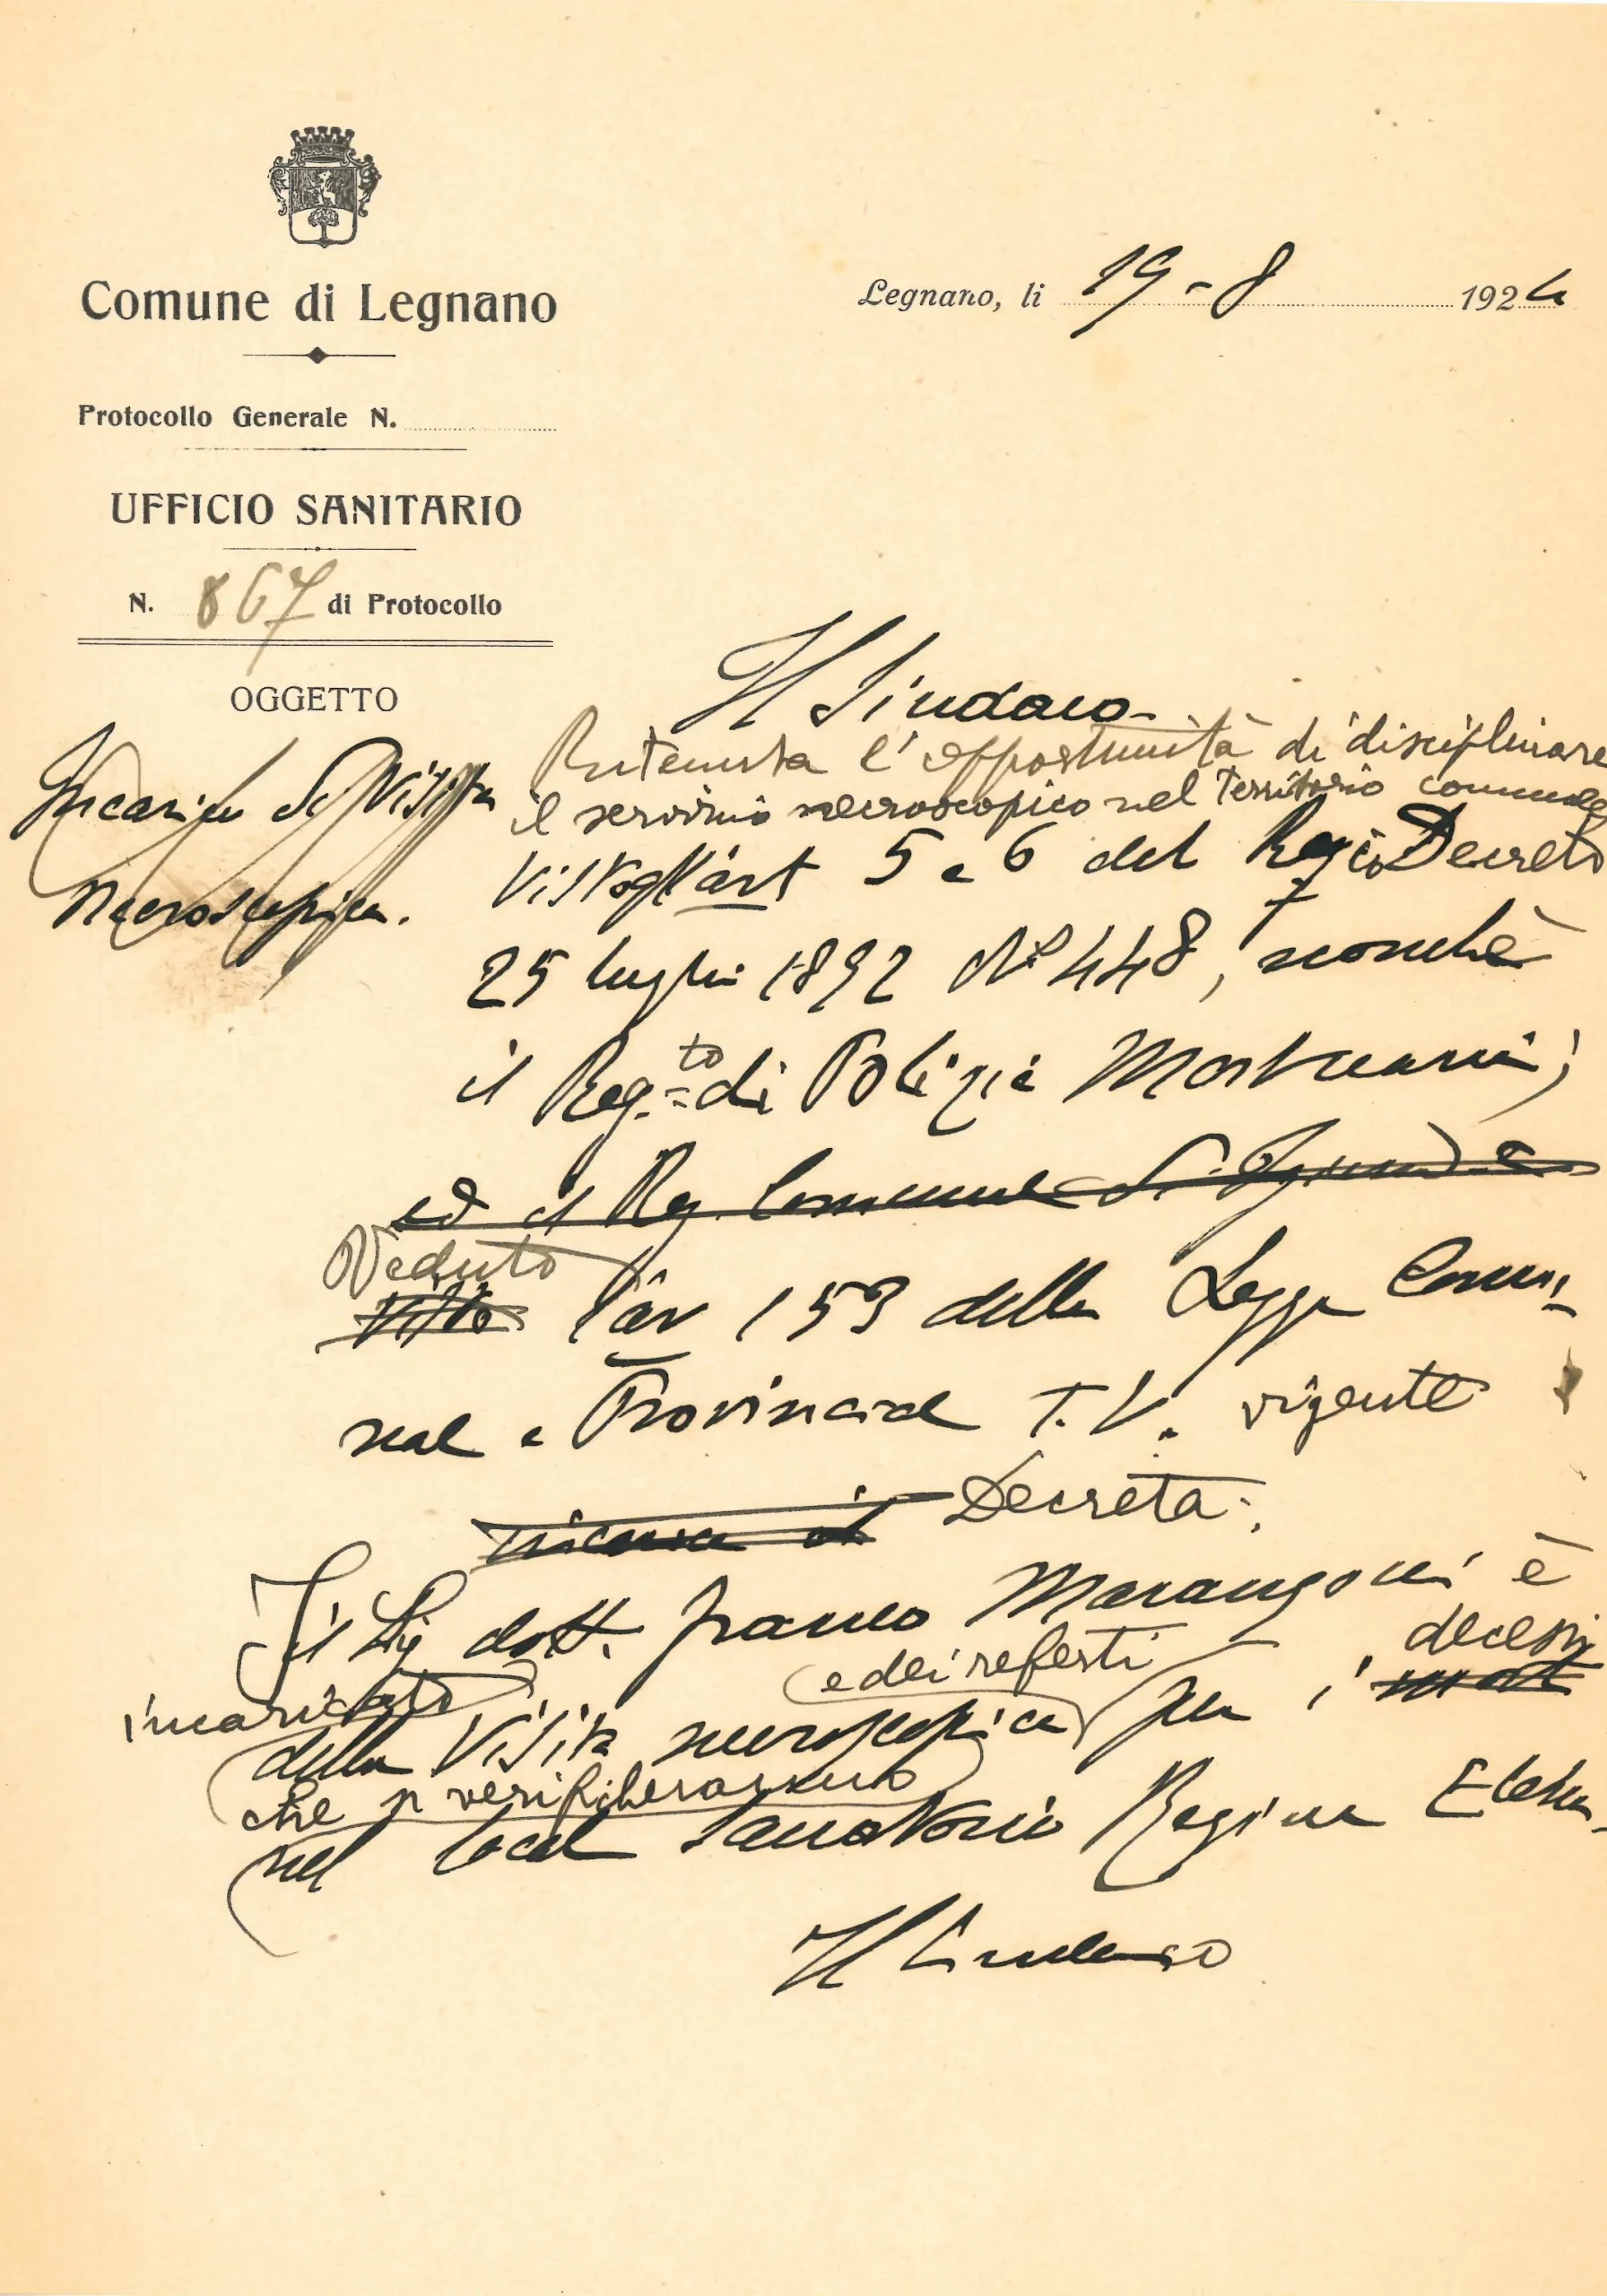 Comune di Legnano
Legnano, li 19-8 1924
Protocollo Generale N.
UFFICIO SANITARIO
N. 867 di Protocollo
OGGETTO
Incarico di Visita
Necroscopica.
Il Sindaco
Ritenuta l'opportunità di disciplinare
il servizio necroscopico nel territorio comunale
Visto gli art 5 e 6 del Regio Decreto
25 luglio 1892 No 448, nonchè
il Reg.to di Polizia Mortuaria;
ed il Reg. Comunale di
Veduto
Visto l'ar 153 della Legge Comu-
nale e Provinciale T. V. vigente
Decreta:
il Sig dott. Franco Marangoni è
e dei referti decessi
incaricato
della Visita necroscopica per i morti
che si verificheranno
nel local Sanatorio Regina Elena.
Il Sindaco